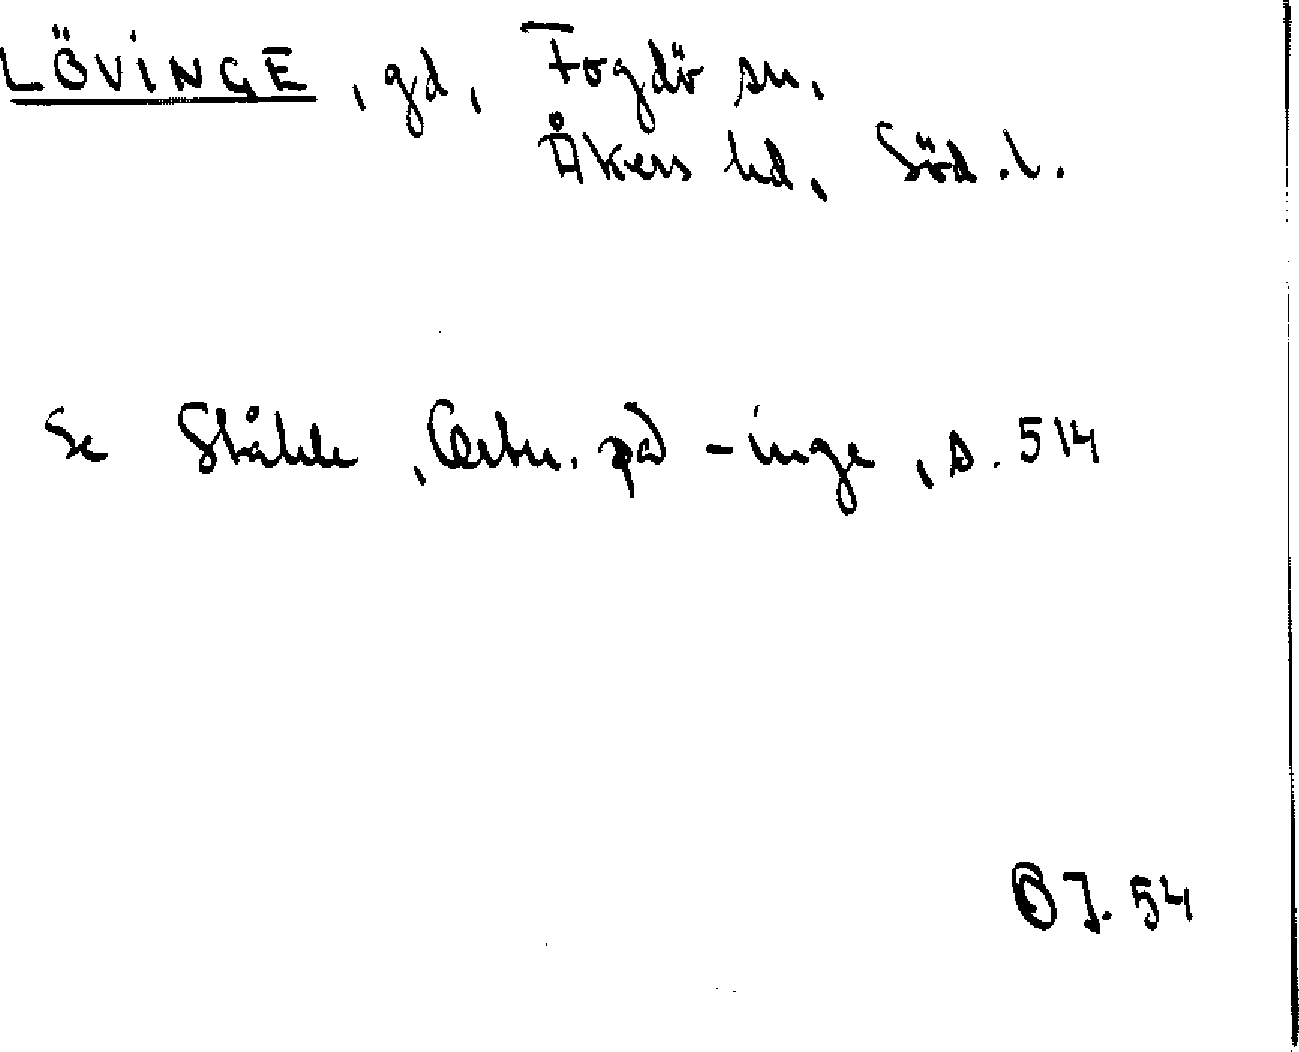 LÖVINGE, gd, Fogdö sn,
Åkers hd, Söd. l.
Se Ståhle, Ortn. på -inge, s. 514
J. 54